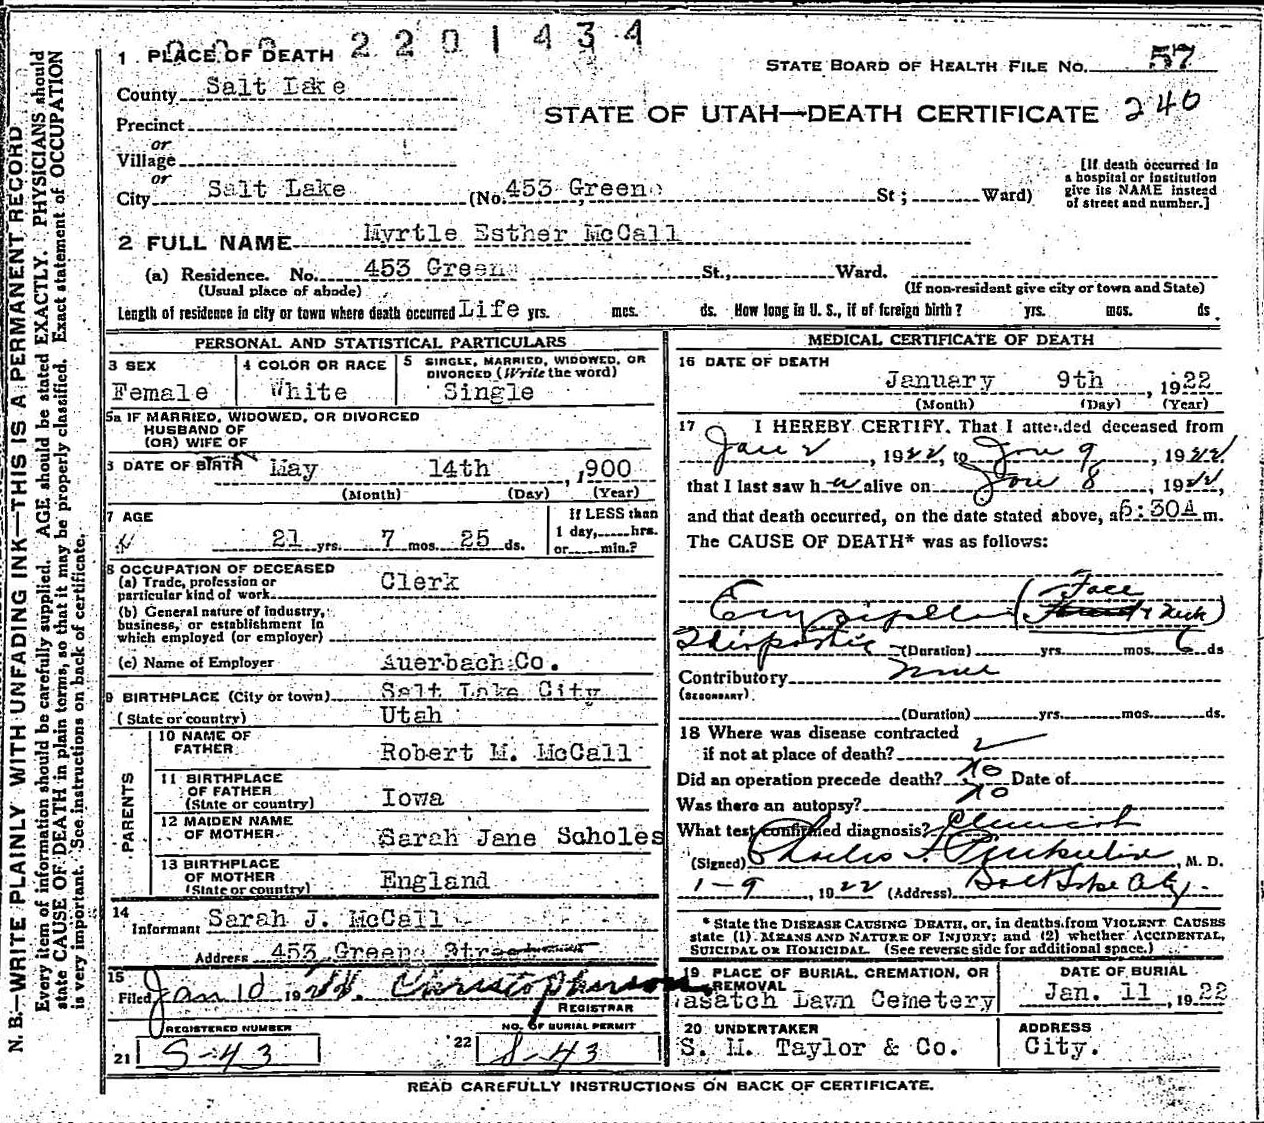 2201434
1 PLACE OF DEATH
STATE BOARD OF HEALTH FILE NO. 57
County Salt Lake
STATE OF UTAH—DEATH CERTIFICATE 240
Precinct
or
Village
or
City Salt Lake (No. 453 Greene St; Ward)
[If death occurred in
a hospital or institution
give its NAME instead
of street and number.]
2 FULL NAME Myrtle Esther McCall
(a) Residence. No. 453 Greene St., Ward.
(Usual place of abode) (If non-resident give city or town and State)
Length of residence in city or town where death occurred Life yrs. mos. ds. How long in U. S., if of foreign birth? yrs. mos. ds.
PERSONAL AND STATISTICAL PARTICULARS
3 SEX
Female
4 COLOR OR RACE
White
5 SINGLE, MARRIED, WIDOWED, OR
DIVORCED (Write the word)
Single
5a IF MARRIED, WIDOWED, OR DIVORCED
HUSBAND OF
(OR) WIFE OF
6 DATE OF BIRTH May 14th, 1900
(Month) (Day) (Year)
7 AGE
21 yrs. 7 mos. 25 ds.
If LESS than
1 day, hrs.
or min.?
8 OCCUPATION OF DECEASED
(a) Trade, profession or
particular kind of work Clerk
(b) General nature of industry,
business, or establishment in
which employed (or employer)
(c) Name of Employer Auerbach Co.
9 BIRTHPLACE (City or town) Salt Lake City
(State or country) Utah
PARENTS
10 NAME OF
FATHER Robert M. McCall
11 BIRTHPLACE
OF FATHER
(State or country) Iowa
12 MAIDEN NAME
OF MOTHER Sarah Jane Scholes
13 BIRTHPLACE
OF MOTHER
(State or country) England
14
Informant Sarah J. McCall
Address 453 Greene Street
15
Filed Jan 10 1922. Christopherson
REGISTRAR
REGISTERED NUMBER
21 S-43
NO. OF BURIAL PERMIT
22 S-43
MEDICAL CERTIFICATE OF DEATH
16 DATE OF DEATH
January 9th, 1922
(Month) (Day) (Year)
17 I HEREBY CERTIFY, That I attended deceased from
Jan 2, 1922, to Jan 9, 1922
that I last saw her alive on Jan 8, 1922,
and that death occurred, on the date stated above, at 6:30A m.
The CAUSE OF DEATH* was as follows:
Face
Erysipelas ( & Neck)
(Duration) yrs. mos. 6 ds
Contributory None
(SECONDARY)
(Duration) yrs. mos. ds.
18 Where was disease contracted
if not at place of death?
Did an operation precede death? No Date of
Was there an autopsy? No
What test confirmed diagnosis? Clinical
(Signed) Charles F. , M. D.
1-9, 1922 (Address) Salt Lake City.
* State the DISEASE CAUSING DEATH, or, in deaths from VIOLENT CAUSES
state (1) MEANS AND NATURE OF INJURY; and (2) whether ACCIDENTAL,
SUICIDAL OR HOMICIDAL. (See reverse side for additional space.)
19 PLACE OF BURIAL, CREMATION, OR
REMOVAL
Wasatch Lawn Cemetery
DATE OF BURIAL
Jan. 11, 1922
20 UNDERTAKER
S. M. Taylor & Co.
ADDRESS
City.
READ CAREFULLY INSTRUCTIONS ON BACK OF CERTIFICATE.
N. B.—WRITE PLAINLY WITH UNFADING INK—THIS IS A PERMANENT RECORD
Every item of information should be carefully supplied. AGE should be stated EXACTLY. PHYSICIANS should
state CAUSE OF DEATH in plain terms, so that it may be properly classified. Exact statement of OCCUPATION
is very important. See instructions on back of certificate.